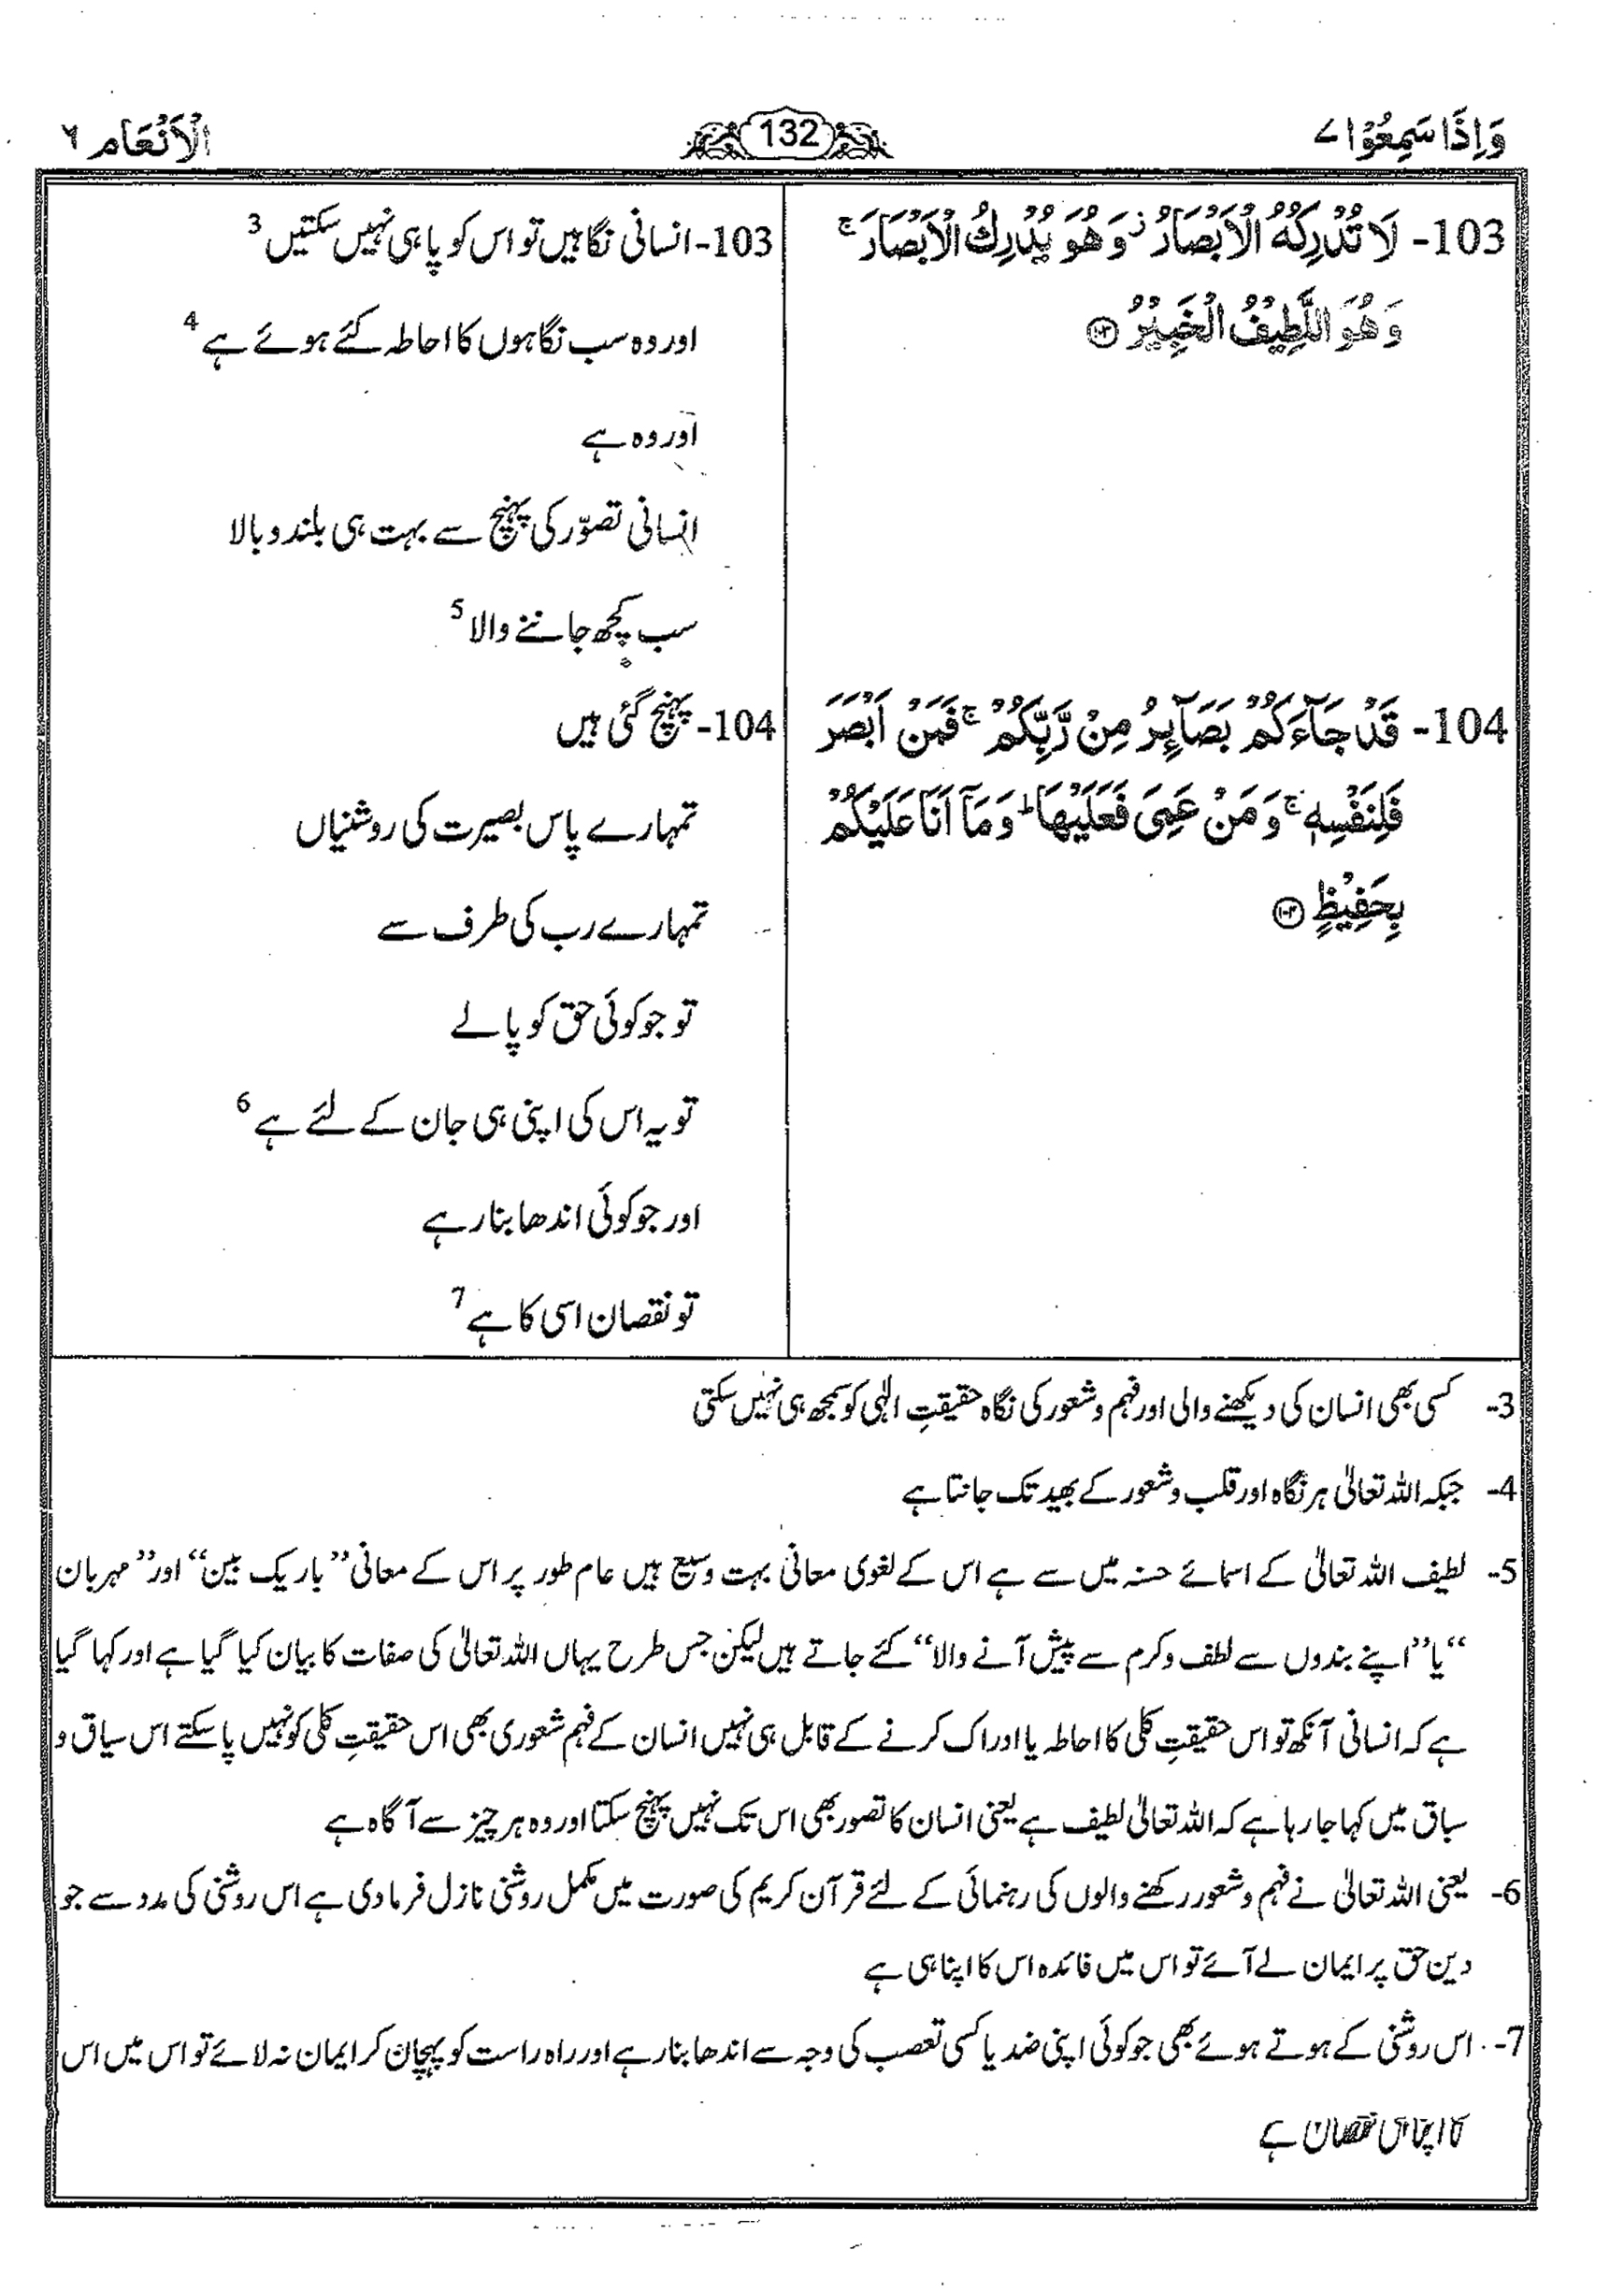 وَاِذَا سَمِعُوْا ۷
132
اَلْاَنْعَام ۶
103- لَا تُدْرِكُهُ الْاَبْصَارُ ۡ وَهُوَ يُدْرِكُ الْاَبْصَارَ ۚ
وَهُوَ اللَّطِيْفُ الْخَبِيْرُ ۝۱۰۳
104- قَدْ جَآءَكُمْ بَصَآىِٕرُ مِنْ رَّبِّكُمْ ۚ فَمَنْ اَبْصَرَ
فَلِنَفْسِهٖ ۚ وَمَنْ عَمِىَ فَعَلَيْهَا ؕ وَمَآ اَنَا عَلَيْكُمْ
بِحَفِيْظٍ ۝۱۰۴
103- انسانی نگاہیں تو اس کو پا ہی نہیں سکتیں 3
اور وہ سب نگاہوں کا احاطہ کئے ہوئے ہے 4
اور وہ ہے
انسانی تصوّر کی پہنچ سے بہت ہی بلند و بالا
سب کچھ جاننے والا 5
104- پہنچ گئی ہیں
تمہارے پاس بصیرت کی روشنیاں
تمہارے رب کی طرف سے
تو جو کوئی حق کو پالے
تو یہ اس کی اپنی ہی جان کے لئے ہے 6
اور جو کوئی اندھا بنا رہے
تو نقصان اسی کا ہے 7
3- کسی بھی انسان کی دیکھنے والی اور فہم و شعور کی نگاہ حقیقتِ الٰہی کو سمجھ ہی نہیں سکتی
4- جبکہ اللہ تعالیٰ ہر نگاہ اور قلب و شعور کے بھید تک جانتا ہے
5- لطیف اللہ تعالیٰ کے اسمائے حسنہ میں سے ہے اس کے لغوی معانی بہت وسیع ہیں عام طور پر اس کے معانی ”باریک بین“ اور ”مہربان
“ یا ”اپنے بندوں سے لطف و کرم سے پیش آنے والا“ کئے جاتے ہیں لیکن جس طرح یہاں اللہ تعالیٰ کی صفات کا بیان کیا گیا ہے اور کہا گیا
ہے کہ انسانی آنکھ تو اس حقیقتِ کلی کا احاطہ یا ادراک کرنے کے قابل ہی نہیں انسان کے فہم شعوری بھی اس حقیقتِ کلی کو نہیں پا سکتے اس سیاق و
سباق میں کہا جا رہا ہے کہ اللہ تعالیٰ لطیف ہے یعنی انسان کا تصور بھی اس تک نہیں پہنچ سکتا اور وہ ہر چیز سے آگاہ ہے
6- یعنی اللہ تعالیٰ نے فہم و شعور رکھنے والوں کی رہنمائی کے لئے قرآن کریم کی صورت میں مکمل روشنی نازل فرما دی ہے اس روشنی کی مدد سے جو
دین حق پر ایمان لے آئے تو اس میں فائدہ اس کا اپنا ہی ہے
7- اس روشنی کے ہوتے ہوئے بھی جو کوئی اپنی ضد یا کسی تعصب کی وجہ سے اندھا بنا رہے اور راہ راست کو پہچان کر ایمان نہ لائے تو اس میں اس
کا اپنا ہی نقصان ہے